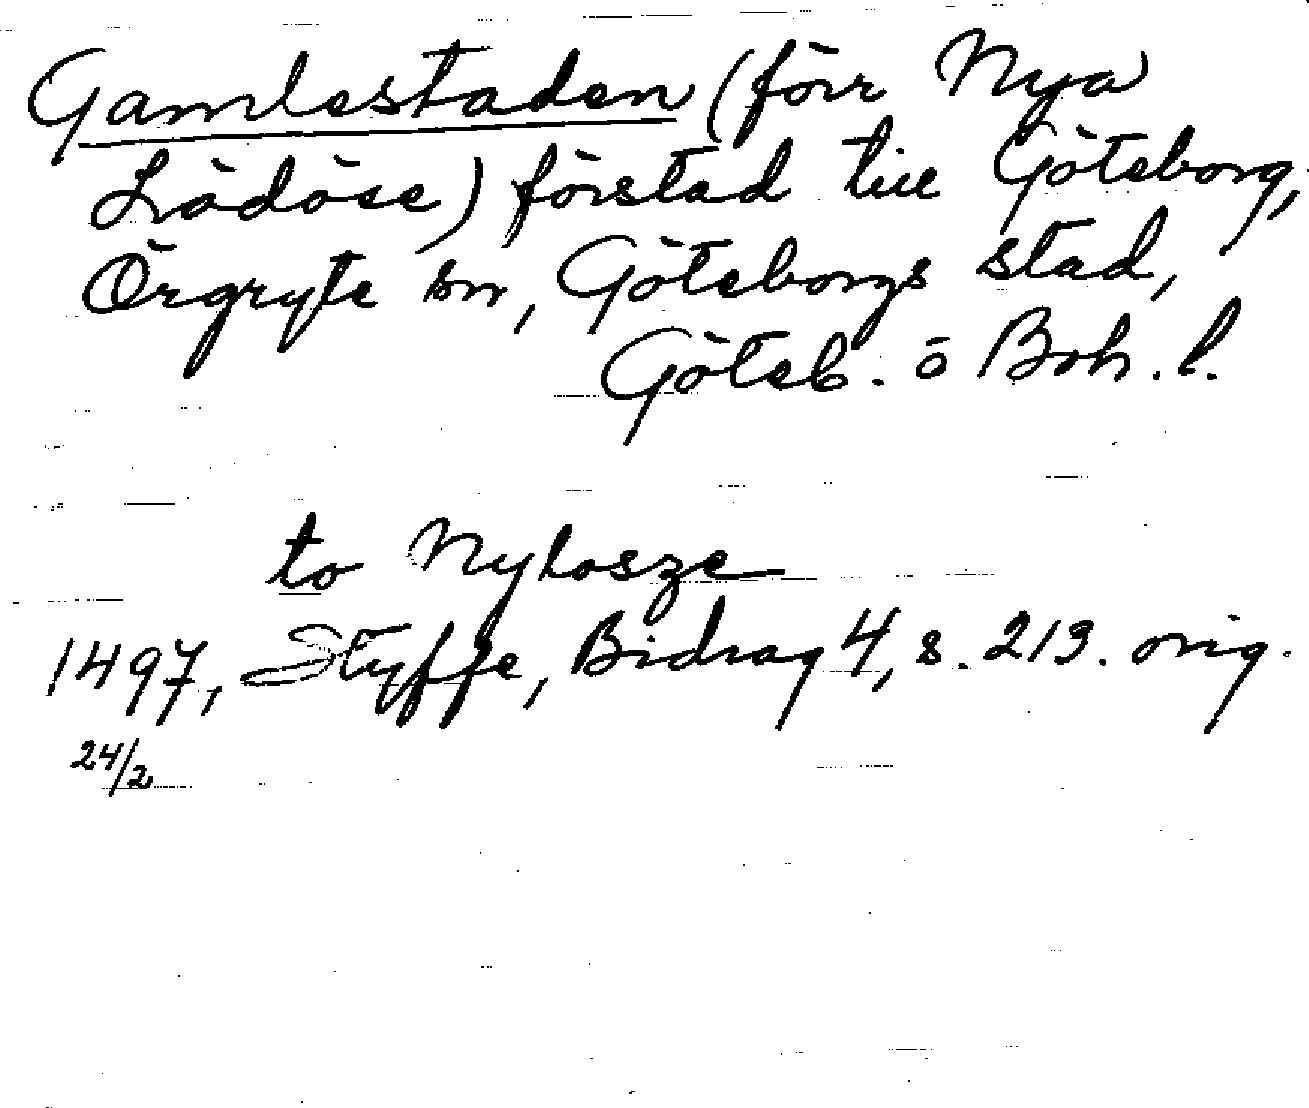 Gamlestaden (förr Nya
Lödöse) förstad till Göteborg,
Örgryte sn, Göteborgs stad,
Göteb. o Boh. l.
to Nylosze
1497, Styffe, Bidrag 4, s. 213. orig.
24/2